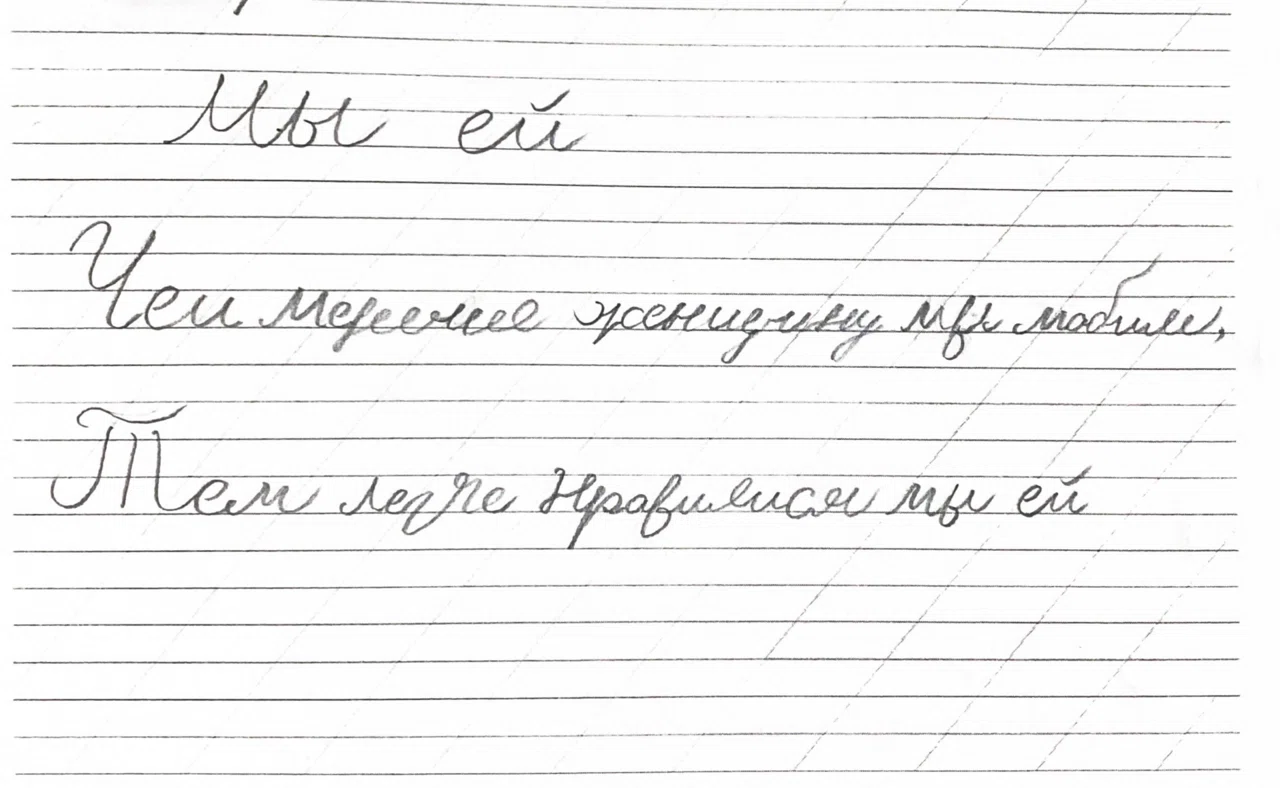 Мы ей
Чем меньше женщину мы любим,
Тем легче нравимся мы ей